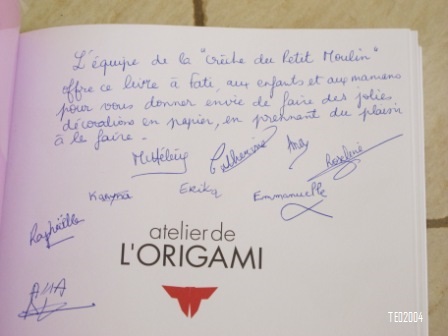 L'équipe de la "Crèche du Petit Moulin"
offre ce livre à Fati, aux enfants et aux mamans
pour vous donner envie de faire des jolies
décorations en papier, en prennent du plaisir
à le faire.
Catherine
Roselyne
Karyna Erika Emmanuelle
Raphaëlle
atelier de
L'ORIGAMI
TED2004